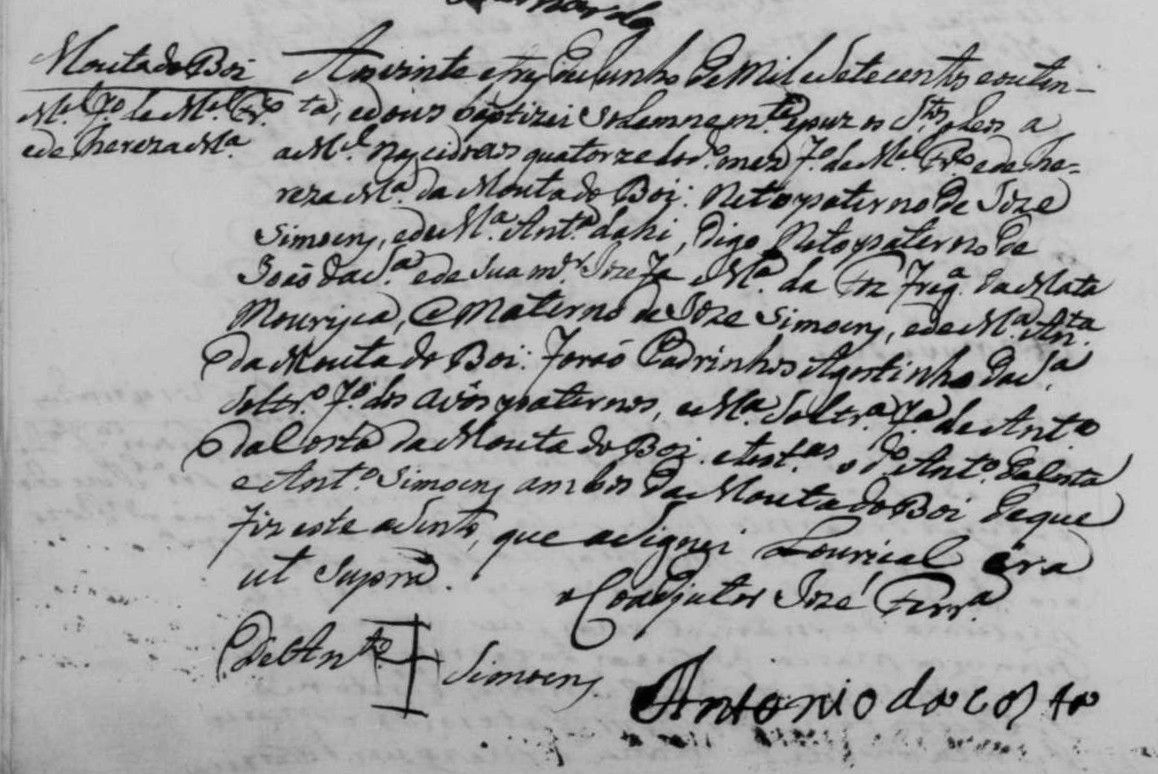 Mouta do Boi
M.el f.o de M.el Frr.o
e de Thereza M.a
Aos vinte e tres de Junho de mil e sete centos e outen-
ta, e dous baptizei solemnem.te e puz os S.tos oleos a
a M.el nascido aos quatorze do d.o mez f.o de M.el Frr.o e de The-
reza M.a da Mouta do Boi: Neto paterno de Joze
Simoens, e de M.a Ant.a dahi, digo Neto paterno de
João da S.a e de sua m.er Jozefa M.a da Foz Freg.a da Mata
Mourisca, e Materno de Joze Simoens, e de M.a An.ta
da Mouta do Boi: forão Padrinhos Agostinho da S.a
soltr.o f.o dos avós paternos, e M.a soltr.a f.a de Ant.o
da Costa da Mouta do Boi. e test.as o d.o Ant.o da Costa
e Ant.o Simoens ambos da Mouta do Boi de que
fiz este asento, que asignei Louriçal era
ut supra.
o Coadjutor José Ferr.a
De Ant.o Simoens
Antonio da costa